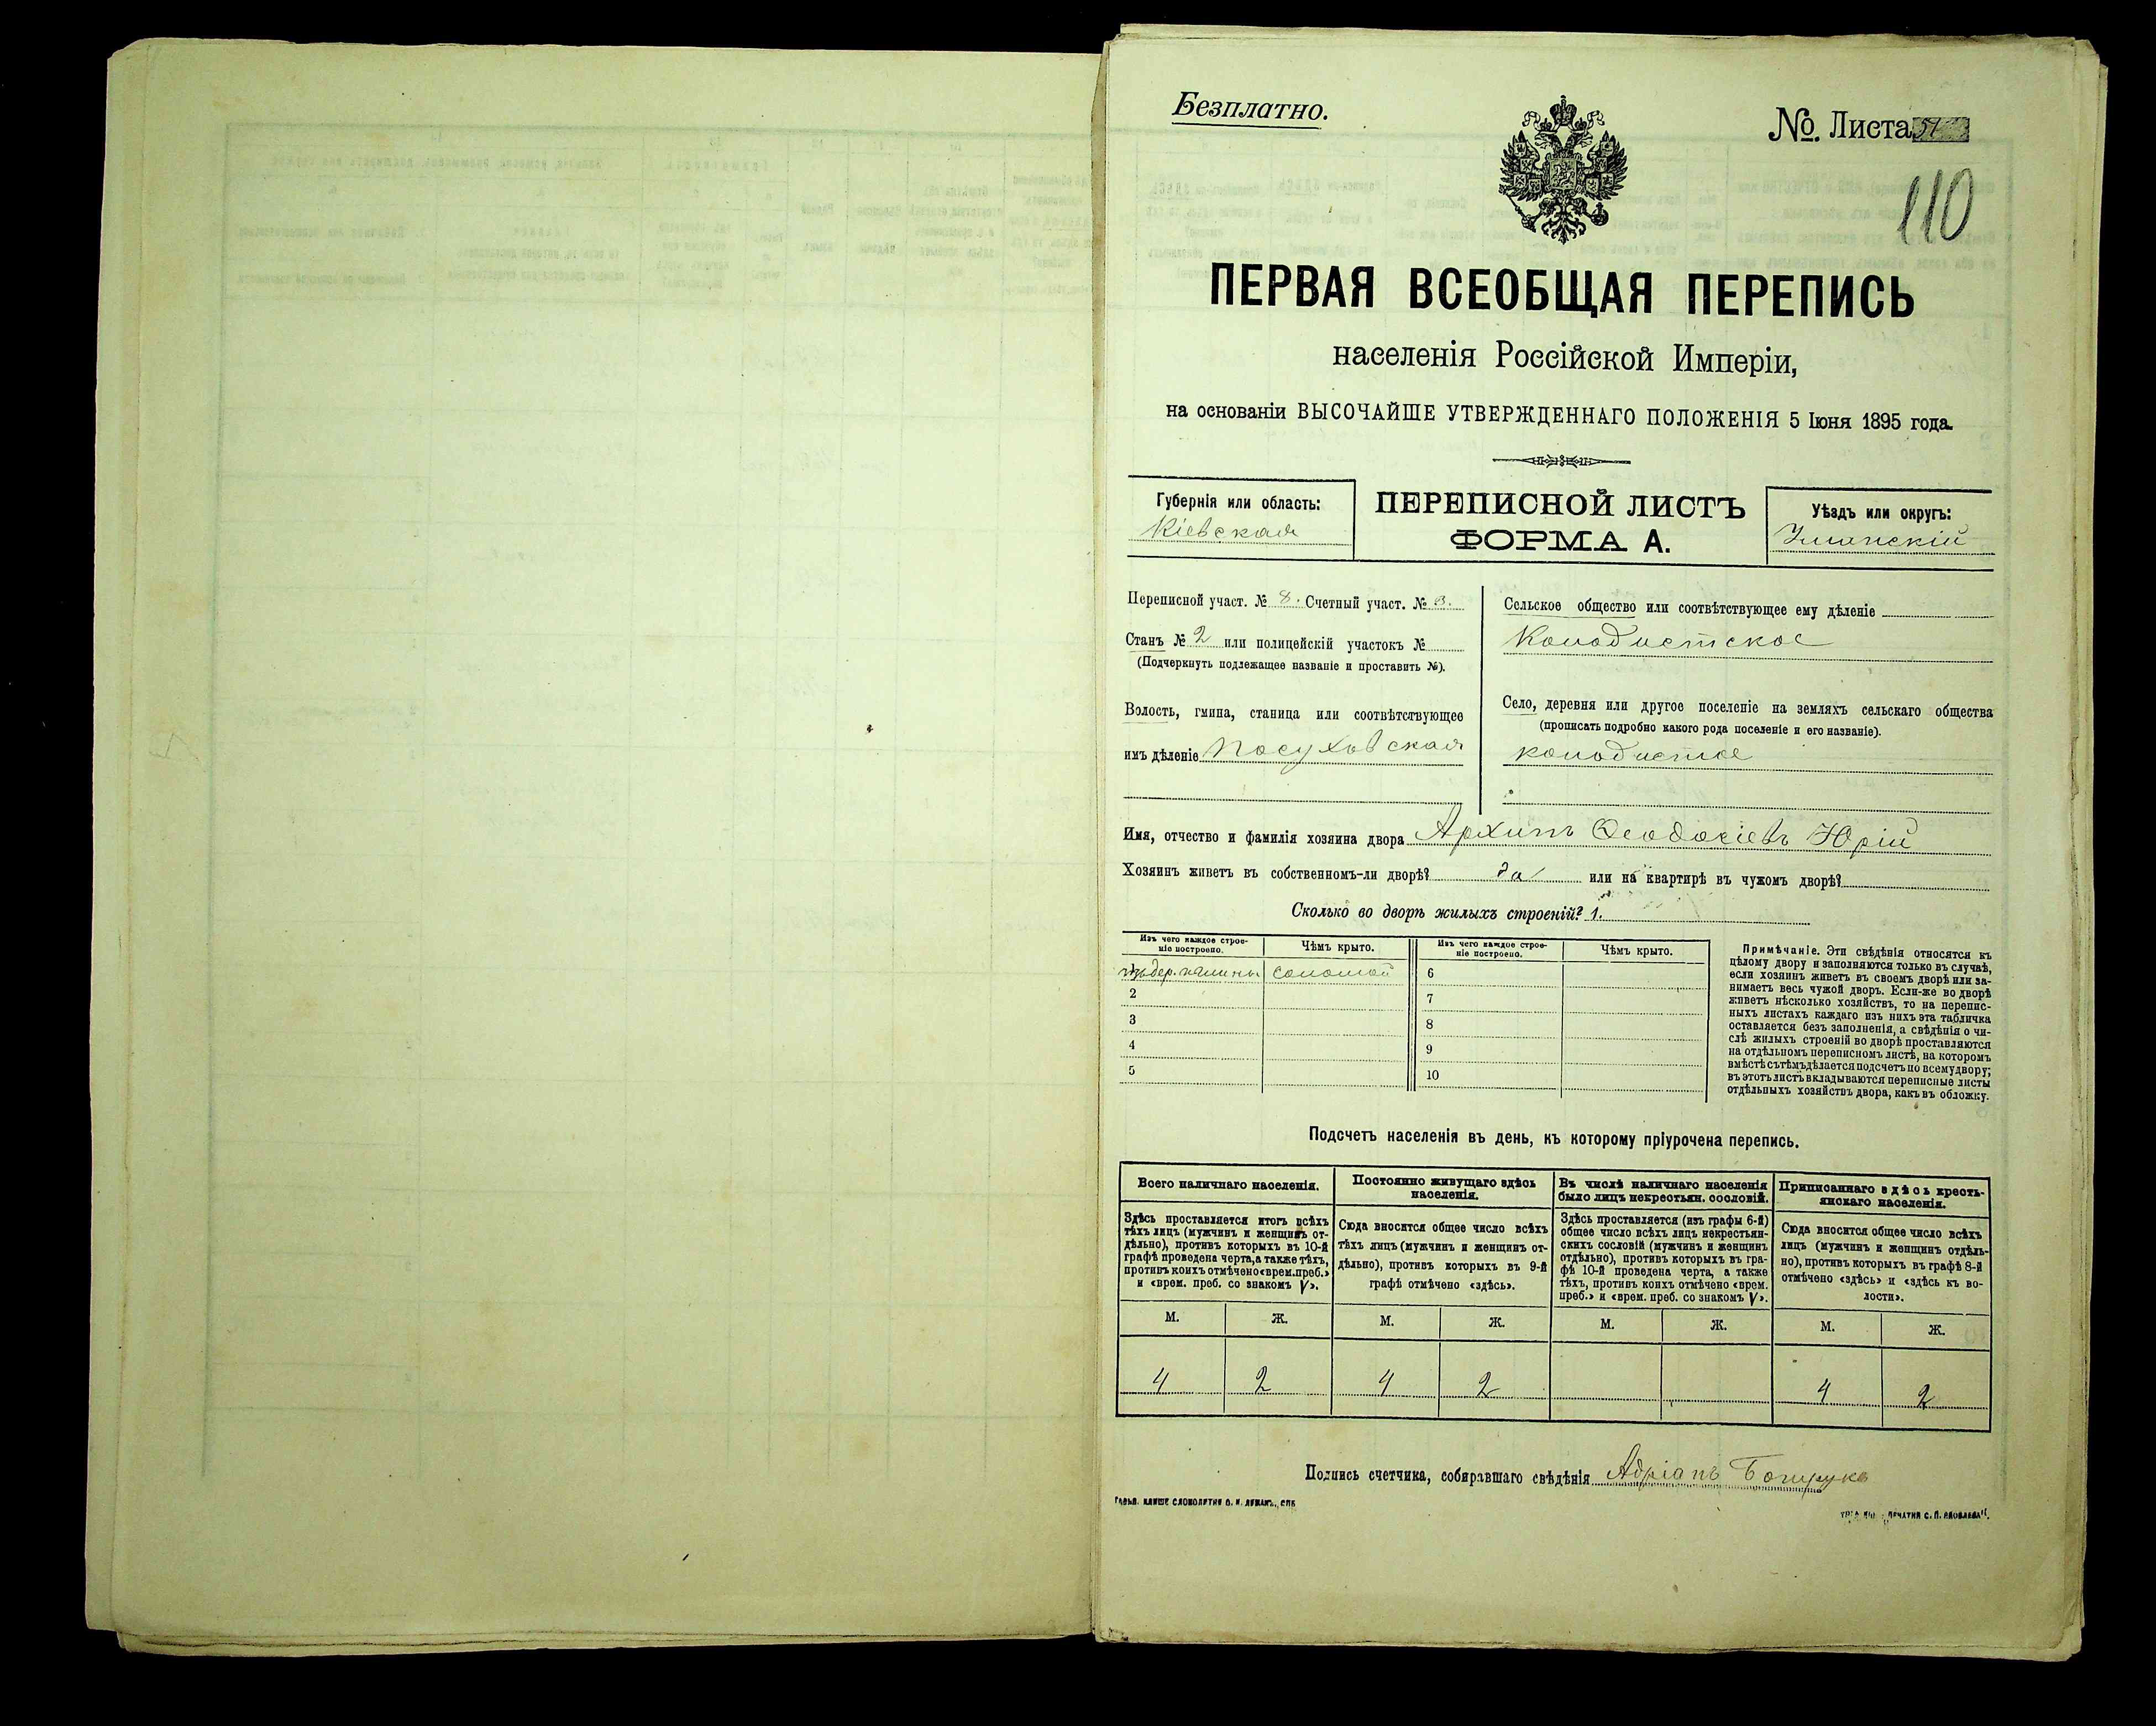 Безплатно.
№ Листа 51
110
ПЕРВАЯ ВСЕОБЩАЯ ПЕРЕПИСЬ
населенія Россійской Имперіи,
на основаніи ВЫСОЧАЙШЕ УТВЕРЖДЕННАГО ПОЛОЖЕНІЯ 5 Іюня 1895 года.
Губернія или область:
Кіевская
ПЕРЕПИСНОЙ ЛИСТЪ
ФОРМА А.
Уѣздъ или округъ:
Уманскій
Переписной участ. № 8. Счетный участ. № 3.
Станъ № 2 или полицейскій участокъ №
(Подчеркнуть подлежащее названіе и проставить №).
Волость, гмина, станица или соотвѣтствующее
имъ дѣленіе Посуховская
Сельское общество или соотвѣтствующее ему дѣленіе
Колодистское
Село, деревня или другое поселеніе на земляхъ сельскаго общества
(прописать подробно какого рода поселеніе и его названіе).
колодистое
Имя, отчество и фамилія хозяина двора Архипъ Ѳеодосіевъ Юрій
Хозяинъ живетъ въ собственномъ-ли дворѣ? да или на квартирѣ въ чужомъ дворѣ?
Сколько во дворѣ жилыхъ строеній? 1.
Изъ чего каждое строе-
ніе построено.
Чѣмъ крыто.
Изъ чего каждое строе-
ніе построено.
Чѣмъ крыто.
изъ дер. и глины соломой 6
2 7
3 8
4 9
5 10
Примѣчаніе. Эти свѣдѣнія относятся къ
цѣлому двору и заполняются только въ случаѣ,
если хозяинъ живетъ въ своемъ дворѣ или за-
нимаетъ весь чужой дворъ. Если-же во дворѣ
живетъ нѣсколько хозяйствъ, то на перепис-
ныхъ листахъ каждаго изъ нихъ эта табличка
оставляется безъ заполненія, а свѣдѣнія о чи-
слѣ жилыхъ строеній во дворѣ проставляются
на отдѣльномъ переписномъ листѣ, на которомъ
вмѣстѣ съ тѣмъ дѣлается подсчетъ по всему двору;
въ этотъ листъ вкладываются переписные листы
отдѣльныхъ хозяйствъ двора, какъ въ обложку.
Подсчетъ населенія въ день, къ которому пріурочена перепись.
Всего наличнаго населенія.
Здѣсь проставляется итогъ всѣхъ
тѣхъ лицъ (мужчинъ и женщинъ от-
дѣльно), противъ которыхъ въ 10-й
графѣ проведена черта, а также тѣхъ,
противъ коихъ отмѣчено «врем. преб.»
и «врем. преб. со знакомъ V».
Постоянно живущаго здѣсь
населенія.
Сюда вносится общее число всѣхъ
тѣхъ лицъ (мужчинъ и женщинъ от-
дѣльно), противъ которыхъ въ 9-й
графѣ отмѣчено «здѣсь».
Въ числѣ наличнаго населенія
было лицъ некрестьян. сословій.
Здѣсь проставляется (изъ графы 6-й)
общее число всѣхъ лицъ некрестьян-
скихъ сословій (мужчинъ и женщинъ
отдѣльно), противъ которыхъ въ гра-
фѣ 10-й проведена черта, а также
тѣхъ, противъ коихъ отмѣчено «врем.
преб.» и «врем. преб. со знакомъ V».
Приписаннаго здѣсь кресть-
янскаго населенія.
Сюда вносится общее число всѣхъ
лицъ (мужчинъ и женщинъ отдѣль-
но), противъ которыхъ въ графѣ 8-й
отмѣчено «здѣсь» и «здѣсь къ во-
лости».
М. Ж. М. Ж. М. Ж. М. Ж.
4 2 4 2 4 2
Подпись счетчика, собиравшаго свѣдѣнія Адріанъ